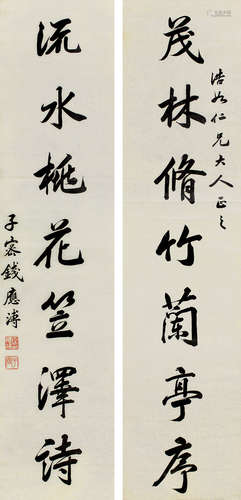 茂林脩竹蘭亭序
浩如仁兄大人正之
流水桃花笠澤詩
子密錢應溥